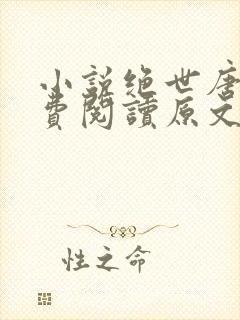 小説絶世唐
費閱讀原文
性之命